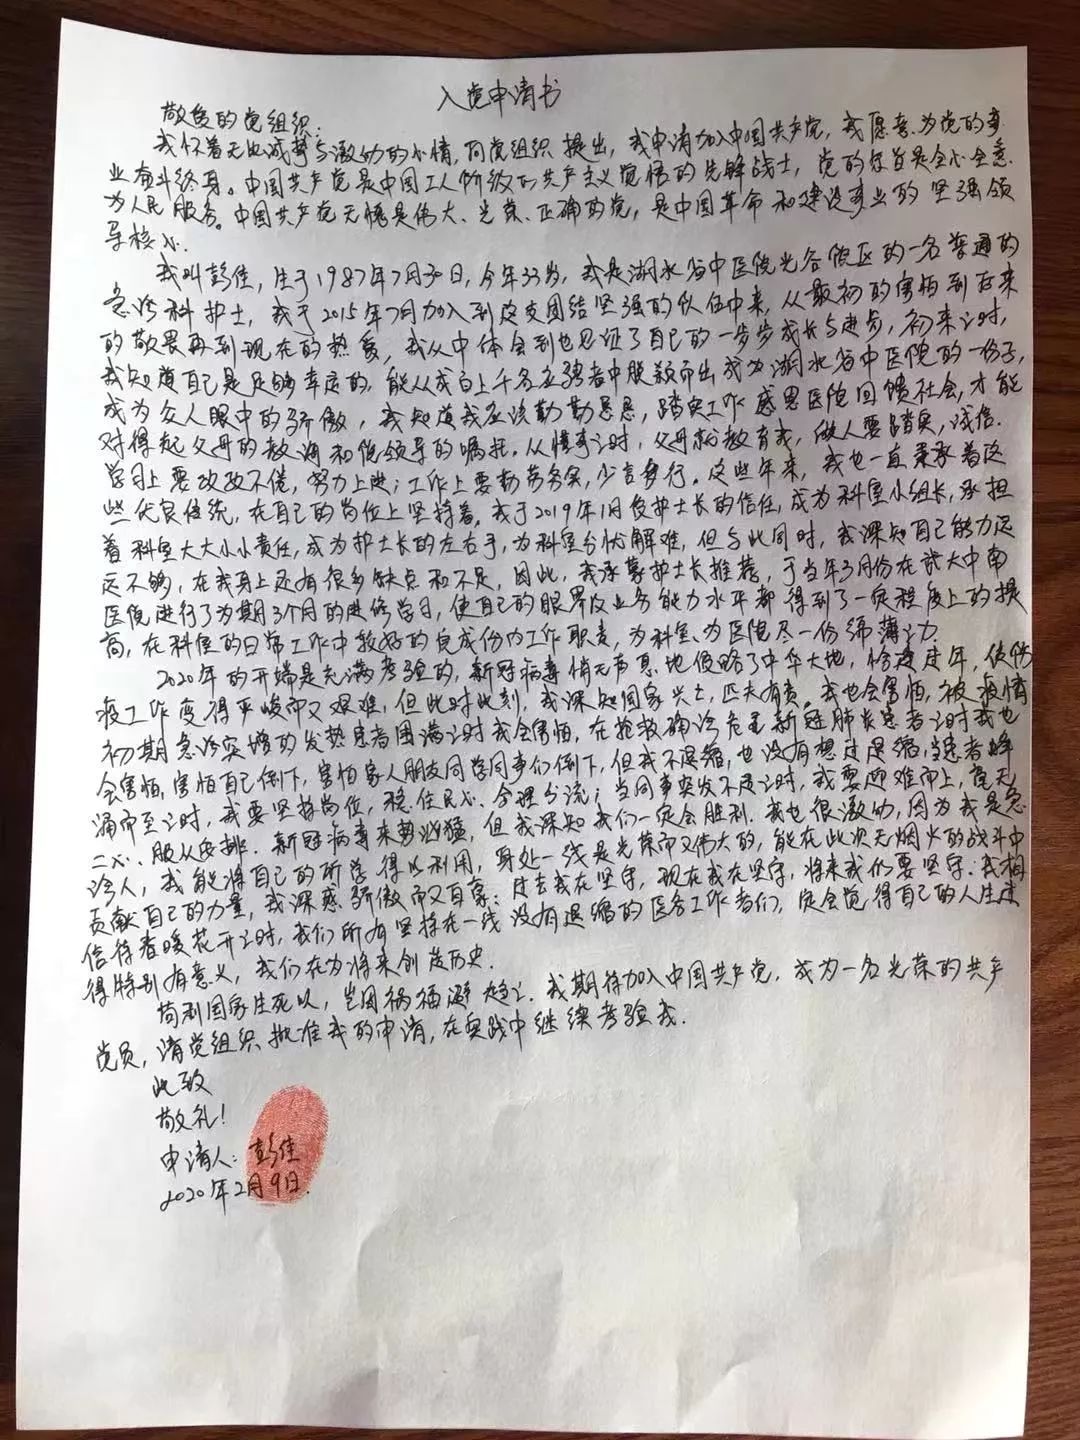 入党申请书
敬爱的党组织:
我怀着无比诚挚与激动的心情,向党组织提出,我申请加入中国共产党,我愿意为党的事
业奋斗终身。中国共产党是中国工人阶级的共产主义觉悟的先锋战士,党的宗旨是全心全意
为人民服务。中国共产党无愧是伟大、光荣、正确的党,是中国革命和建设事业的坚强领
导核心.
我叫彭佳,生于1987年7月30日,今年33岁,我是湖北省中医院光谷院区的一名普通的
急诊科护士,我于2015年7月加入到这支团结坚强的队伍中来,从最初的害怕到后来
的敬畏再到现在的热爱,我从中体会到也见证了自己的一步步成长与进步,初来之时,
我知道自己是足够幸运的,能从成百上千名应聘者中脱颖而出成为湖北省中医院的一份子,
成为众人眼中的骄傲,我知道我应该勤勤恳恳,踏实工作感恩医院回馈社会,才能
对得起父母的教诲和院领导的嘱托.从懂事之时,父母就教育我,做人要踏实,诚信.
学习上要孜孜不倦,努力上进;工作上要勤劳务实,少言多行。这些年来,我也一直秉承着这
些优良传统,在自己的岗位上坚持着。我于2019年1月受护士长的信任,成为科室小组长,承担
着科室大大小小责任,成为护士长的左右手,为科室分忧解难,但与此同时,我深知自己能力远
远不够,在我身上还有很多缺点和不足,因此,我承蒙护士长推荐,于当年3月份在武大中南
医院进行了为期3个月的进修学习,使自己的眼界及业务能力水平都得到了一定程度上的提
高,在科室的日常工作中较好的完成份内工作职责,为科室、为医院尽一份绵薄之力.
2020年的开端是充满考验的,新冠病毒悄无声息地侵略了中华大地,恰逢过年,使防
疫工作变得严峻而又艰难,但此时此刻,我深知国家兴亡,匹夫有责。我也会害怕,被疫情
初期急诊突增的发热患者围满之时我会害怕,在抢救确诊危重新冠肺炎患者之时我也
会害怕,害怕自己倒下,害怕家人朋友同学同事们倒下,但我不退缩,也没有想过退缩,当患者蜂
涌而至之时,我要坚持岗位,稳住民心、合理分流;当同事突发不适之时,我要迎难而上,毫无
二心、服从安排.新冠病毒来势汹猛,但我深知我们一定会胜利.我也很激动,因为我是急
诊人,我能将自己的所学得以利用,身处一线是光荣而又伟大的,能在此次无烟火的战斗中
贡献自己的力量,我深感骄傲而又自豪;过去我在坚守,现在我在坚守,将来我们要坚守;我相
信待春暖花开之时,我们所有坚持在一线没有退缩的医务工作者们,定会觉得自己的人生过
得特别有意义,我们在为将来创造历史.
苟利国家生死以,岂因祸福避趋之.我期待加入中国共产党,成为一名光荣的共产
党员,请党组织批准我的申请,在实践中继续考验我.
此致
敬礼!
申请人:彭佳
2020年2月9日.